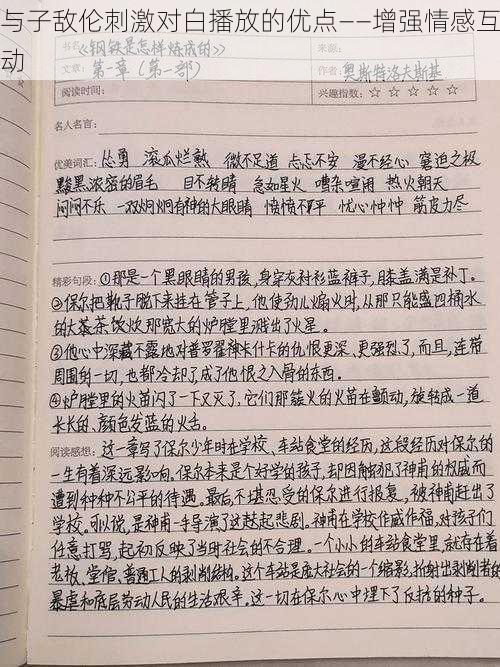 与子敌伦刺激对白播放的优点——增强情感互
动
书名:《钢铁是怎样炼成的》
来源:
文章: 第一章(第一部)
作者: 奥斯特洛夫斯基
阅读时间:
兴趣指数: ☆ ☆ ☆ ☆ ☆
名人名言:
优美词汇: 怂勇 滚瓜烂熟 微不足道 忐忑不安 漫不经心 窘迫之极
黝黑浓密的眉毛 目不转睛 急如星火 嘈杂喧闹 热火朝天
闷闷不乐 一双炯炯有神的大眼睛 愤愤不平 忧心忡忡 筋疲力尽
精彩句段: ①那是一个黑眼睛的男孩,身穿灰衬衫蓝裤子,膝盖满是补丁。
②保尔把靴子脱下来挂在管子上,他使劲儿煽火时,从那只能盛四桶水
的大茶炊 那宽大的炉膛里溅出了火星。
③他心中深藏不露地对普罗霍神卡什卡的仇恨更深、更强烈了,而且,连带
周围的一切,也都冷却了,成了他恨之入骨的东西。
④炉膛里的火苗闪了一下又灭了,它们那簇火的火苗在颤动,旋转成一道
长长的、颜色发蓝的火舌。
阅读感想: 这一章写了保尔少年时在学校、车站食堂的经历,这段经历对保尔的
一生有着深远影响。保尔本来是个好学的孩子,却因触犯了神甫的权威而
遭到种种不公平的待遇。最后,不堪忍受的保尔进行报复,被神甫赶出了
学校。可以说,是神甫一手导演了这起悲剧。神甫在学校作威作福,对孩子们
任意打骂,起初反映了当时社会的不合理。一个小小的车站食堂里,就存在着
老板、堂倌、普通工人的剥削结构。这个车站是庞大社会的一个缩影,折射出剥削者的
暴虐和底层劳动人民的生活艰辛。这一切在保尔心中埋下了反抗的种子。